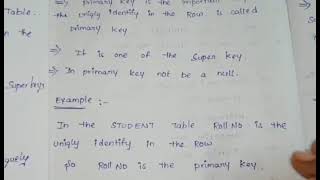 Table..
n the
Super keys
quely
⇒ primary key is the important
the uniqly identify in the Row is called
primary key
⇒ It is one of the Super key
⇒ In primary key not be a null.
Example :-
In the STUDENT Table Roll No is the
uniqly identify in the Row
So Roll No is the primary key.